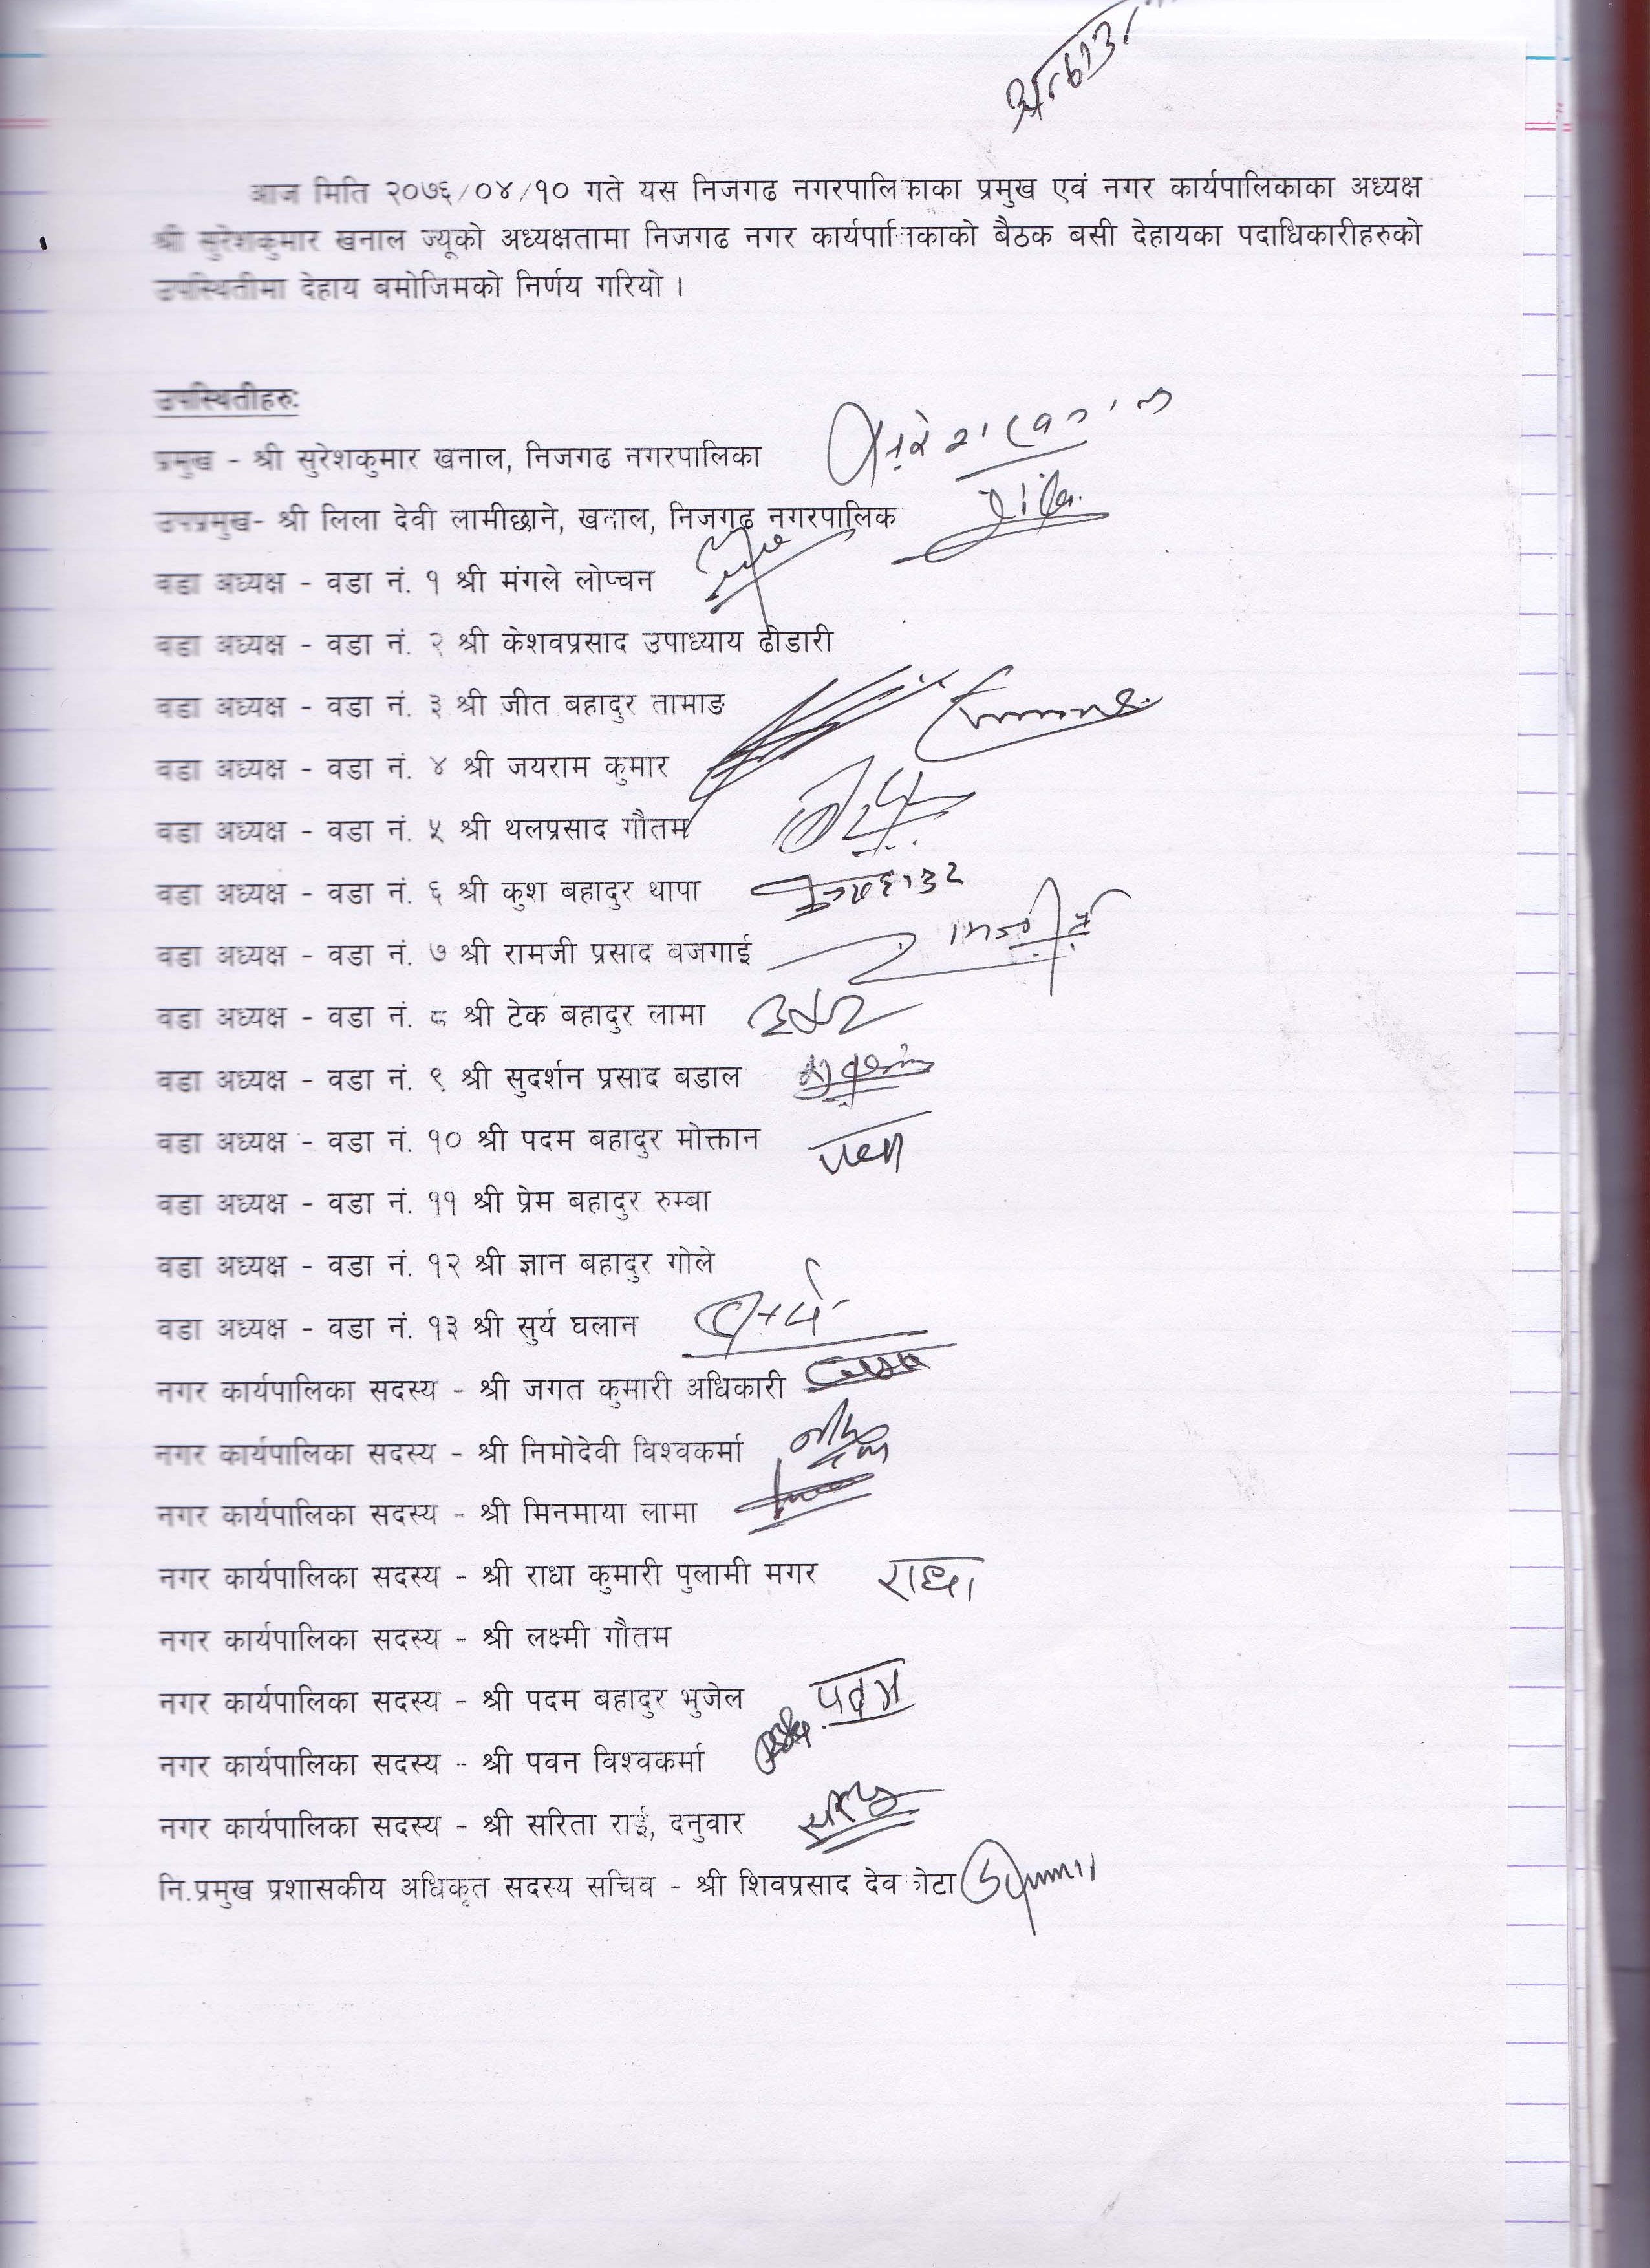 आज मिति २०७६/०४/१० गते यस निजगढ नगरपालिकाका प्रमुख एवं नगर कार्यपालिकाका अध्यक्ष
श्री सुरेशकुमार खनाल ज्यूको अध्यक्षतामा निजगढ नगर कार्यपालिकाको बैठक बसी देहायका पदाधिकारीहरुको
उपस्थितीमा देहाय बमोजिमको निर्णय गरियो ।
उपस्थितीहरु:
प्रमुख - श्री सुरेशकुमार खनाल, निजगढ नगरपालिका
उपप्रमुख- श्री लिला देवी लामीछाने, खनाल, निजगढ नगरपालिक
वडा अध्यक्ष - वडा नं. १ श्री मंगले लोप्चन
वडा अध्यक्ष - वडा नं. २ श्री केशवप्रसाद उपाध्याय ढीडारी
वडा अध्यक्ष - वडा नं. ३ श्री जीत बहादुर तामाङ
वडा अध्यक्ष - वडा नं. ४ श्री जयराम कुमार
वडा अध्यक्ष - वडा नं. ५ श्री थलप्रसाद गौतम
वडा अध्यक्ष - वडा नं. ६ श्री कुश बहादुर थापा
वडा अध्यक्ष - वडा नं. ७ श्री रामजी प्रसाद बजगाई
वडा अध्यक्ष - वडा नं. ८ श्री टेक बहादुर लामा
वडा अध्यक्ष - वडा नं. ९ श्री सुदर्शन प्रसाद बडाल
वडा अध्यक्ष - वडा नं. १० श्री पदम बहादुर मोक्तान
वडा अध्यक्ष - वडा नं. ११ श्री प्रेम बहादुर रुम्बा
वडा अध्यक्ष - वडा नं. १२ श्री ज्ञान बहादुर गोले
वडा अध्यक्ष - वडा नं. १३ श्री सुर्य घलान
नगर कार्यपालिका सदस्य - श्री जगत कुमारी अधिकारी
नगर कार्यपालिका सदस्य - श्री निमोदेवी विश्वकर्मा
नगर कार्यपालिका सदस्य - श्री मिनमाया लामा
नगर कार्यपालिका सदस्य - श्री राधा कुमारी पुलामी मगर राधा
नगर कार्यपालिका सदस्य - श्री लक्ष्मी गौतम
नगर कार्यपालिका सदस्य - श्री पदम बहादुर भुजेल पदम
नगर कार्यपालिका सदस्य - श्री पवन विश्वकर्मा
नगर कार्यपालिका सदस्य - श्री सरिता राई, दनुवार
नि.प्रमुख प्रशासकीय अधिकृत सदस्य सचिव - श्री शिवप्रसाद देवकोटा